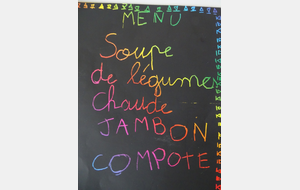 MENU
Soupe
de légume
Chaude
JAMBON
COMPOTE